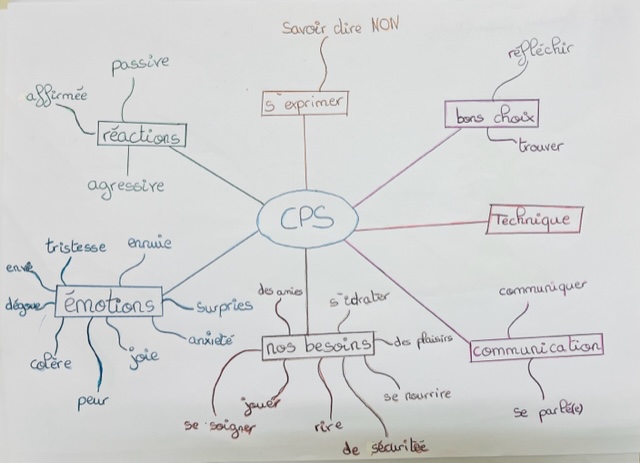 Savoir dire NON
s'exprimer
passive
affirmée
réactions
agressive
réfléchir
bons choix
trouver
CPS
Technique
tristesse
ennuie
envie
dégoue
émotions
surpries
anxieté
colère
joie
peur
des amies
s'édrater
nos besoins
des plaisirs
se nourrire
jouer
se soigner
rire
de sécuriteé
communiquer
communication
se parlé(e)